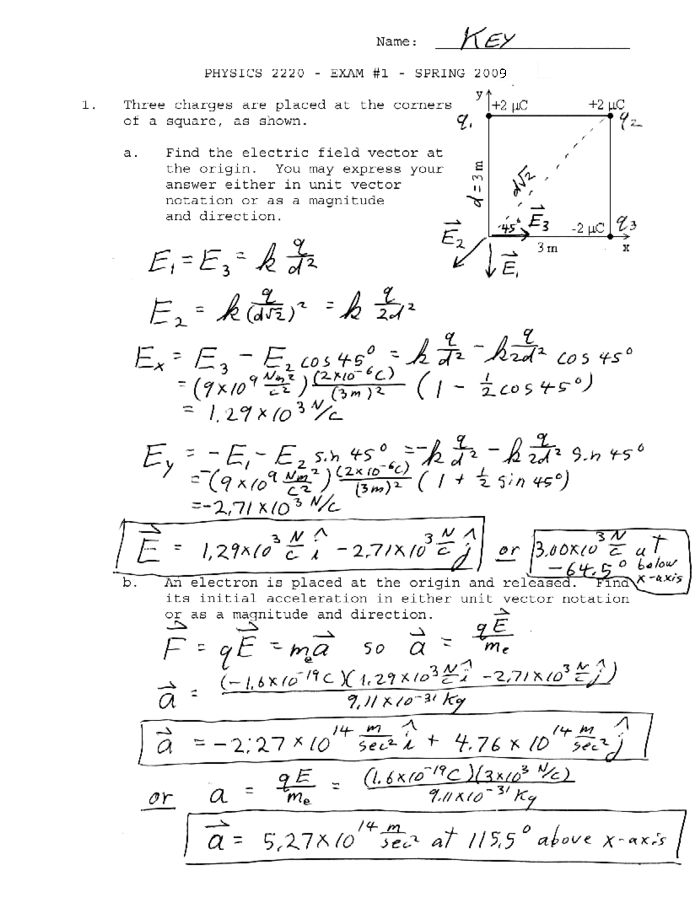 Name: KEY
PHYSICS 2220 - EXAM #1 - SPRING 2009
1. Three charges are placed at the corners
of a square, as shown.
y
+2 µC
+2 µC
q₁
q₂
d = 3 m
d√2
45°
E⃗₃
-2 µC
q₃
E⃗₂
3 m
x
E⃗₁
a. Find the electric field vector at
the origin. You may express your
answer either in unit vector
notation or as a magnitude
and direction.
E₁ = E₃ = k q/d²
E₂ = k q/(d√2)² = k q/2d²
Eₓ = E₃ - E₂ cos 45° = k q/d² - k q/2d² cos 45°
= (9×10⁹ Nm²/C²) (2×10⁻⁶C)/(3m)² (1 - 1/2 cos 45°)
= 1.29×10³ N/C
E_y = -E₁ - E₂ sin 45° = -k q/d² - k q/2d² sin 45°
= -(9×10⁹ Nm²/C²) (2×10⁻⁶C)/(3m)² (1 + 1/2 sin 45°)
= -2,71×10³ N/C
E⃗ = 1,29×10³ N/C î - 2.71×10³ N/C ĵ or 3.00×10³ N/C at
-64.5° below
x-axis
b. An electron is placed at the origin and released. Find
its initial acceleration in either unit vector notation
or as a magnitude and direction.
F⃗ = qE⃗ = mₑa⃗ so a⃗ = qE⃗/mₑ
a⃗ = (-1.6×10⁻¹⁹C)(1.29×10³ N/C î - 2.71×10³ N/C ĵ)/9.11×10⁻³¹ Kg
a⃗ = -2.27×10¹⁴ m/sec² î + 4.76×10¹⁴ m/sec² ĵ
or a = qE/mₑ = (1.6×10⁻¹⁹C)(3×10³ N/C)/9.11×10⁻³¹ Kg
a⃗ = 5,27×10¹⁴ m/sec² at 115.5° above x-axis